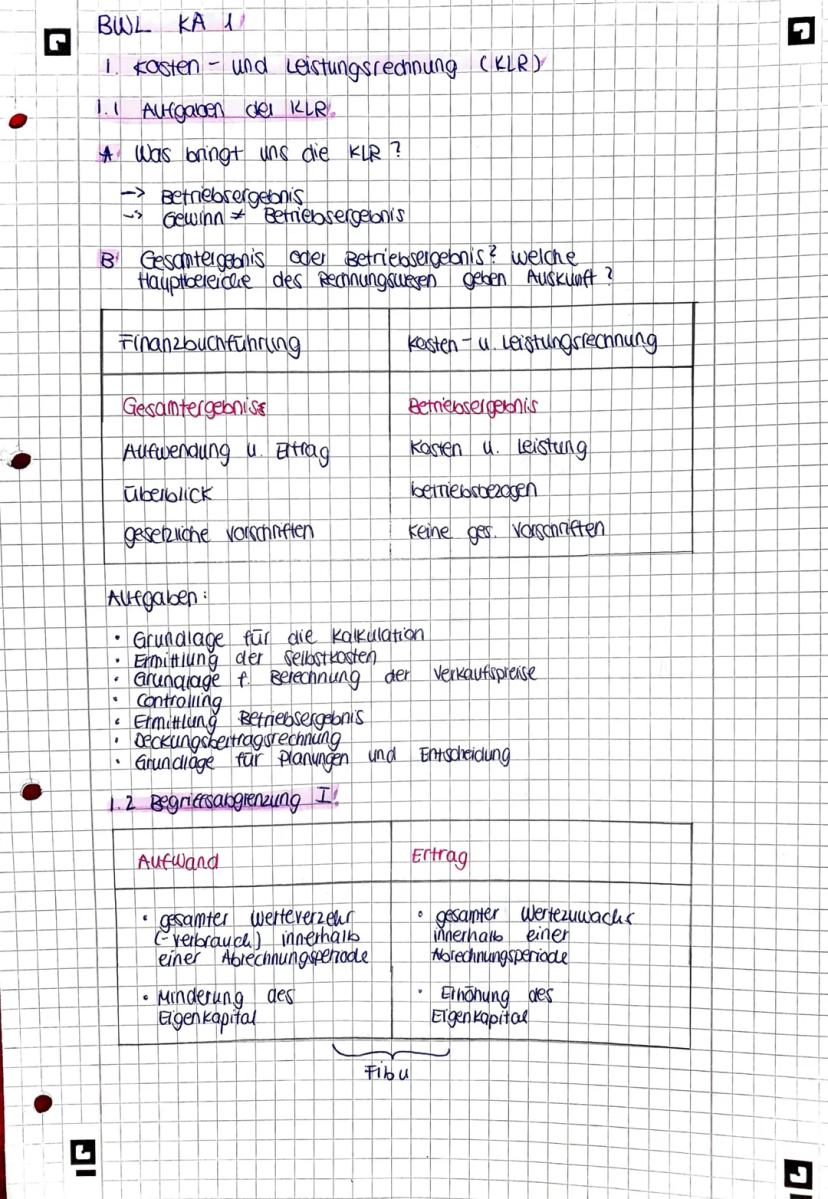 BWL KA 1
1. Kosten- und Leistungsrechnung (KLR)
1.1 Aufgaben der KLR
A Was bringt uns die KLR?
-> Betriebsergebnis
-> Gewinn ≠ Betriebsergebnis
B Gesamtergebnis oder Betriebsergebnis? Welche
Hauptbereiche des Rechnungswesen geben Auskunft?
Finanzbuchführung Kosten- u. Leistungsrechnung
Gesamtergebniss Betriebsergebnis
Aufwendung u. Ertrag Kosten u. Leistung
Überblick betriebsbezogen
gesetzliche Vorschriften keine ges. Vorschriften
Aufgaben:
• Grundlage für die Kalkulation
• Ermittlung der Selbstkosten
• Grundlage f. Berechnung der Verkaufspreise
• Controlling
• Ermittlung Betriebsergebnis
• Deckungsbeitragsrechnung
• Grundlage für Planungen und Entscheidung
1.2 Begriffsabgrenzung I
Aufwand Ertrag
• gesamter Werteverzehr • gesamter Wertezuwachs
(-verbrauch) innerhalb innerhalb einer
einer Abrechnungsperiode Abrechnungsperiode
• Minderung des • Erhöhung des
Eigenkapital Eigenkapital
Fibu